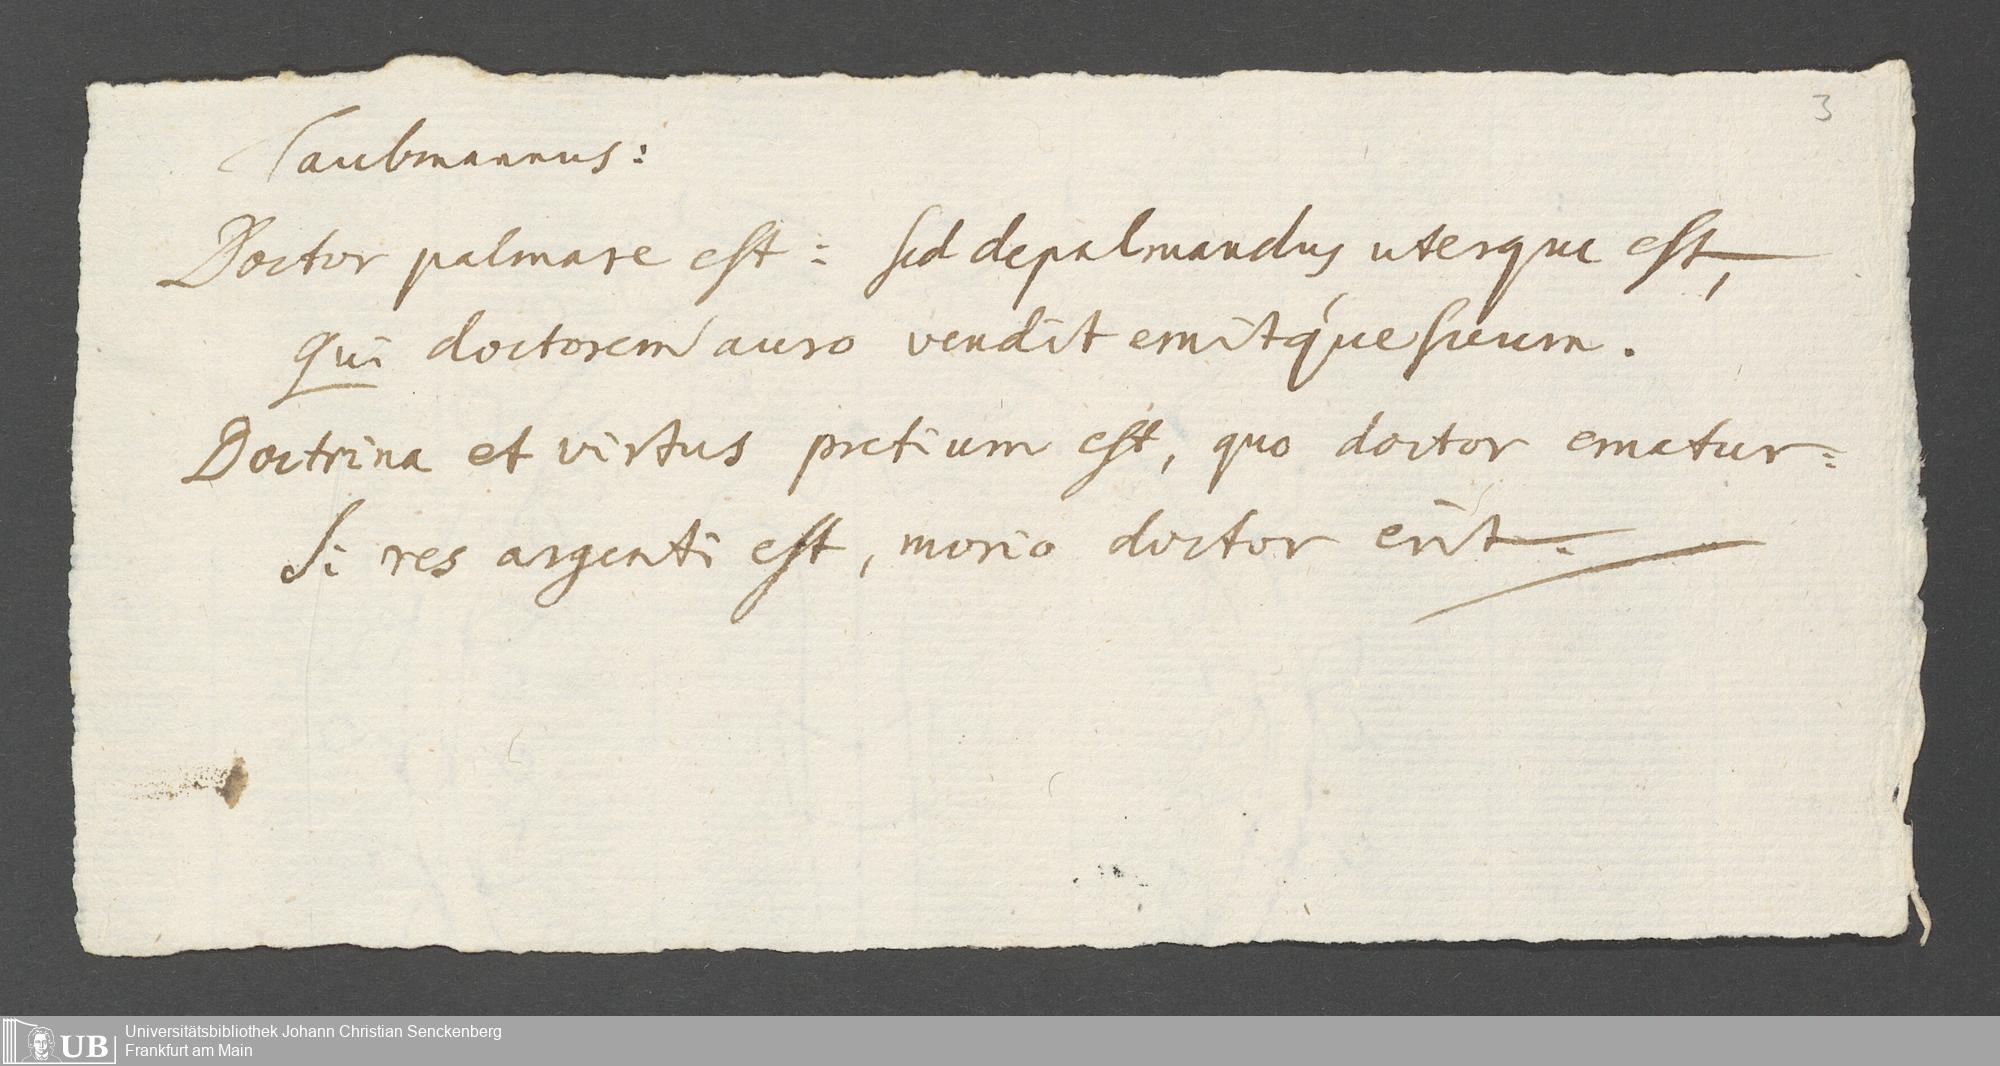 3
Taubmannus:
Doctor palmare est: sed depalmandus uterque est,
qui doctorem auro vendit emitq́ue suum.
Doctrina et virtus pretium est, quo doctor ematur:
Si res argenti est, morio doctor erit.
UB
Universitätsbibliothek Johann Christian Senckenberg
Frankfurt am Main